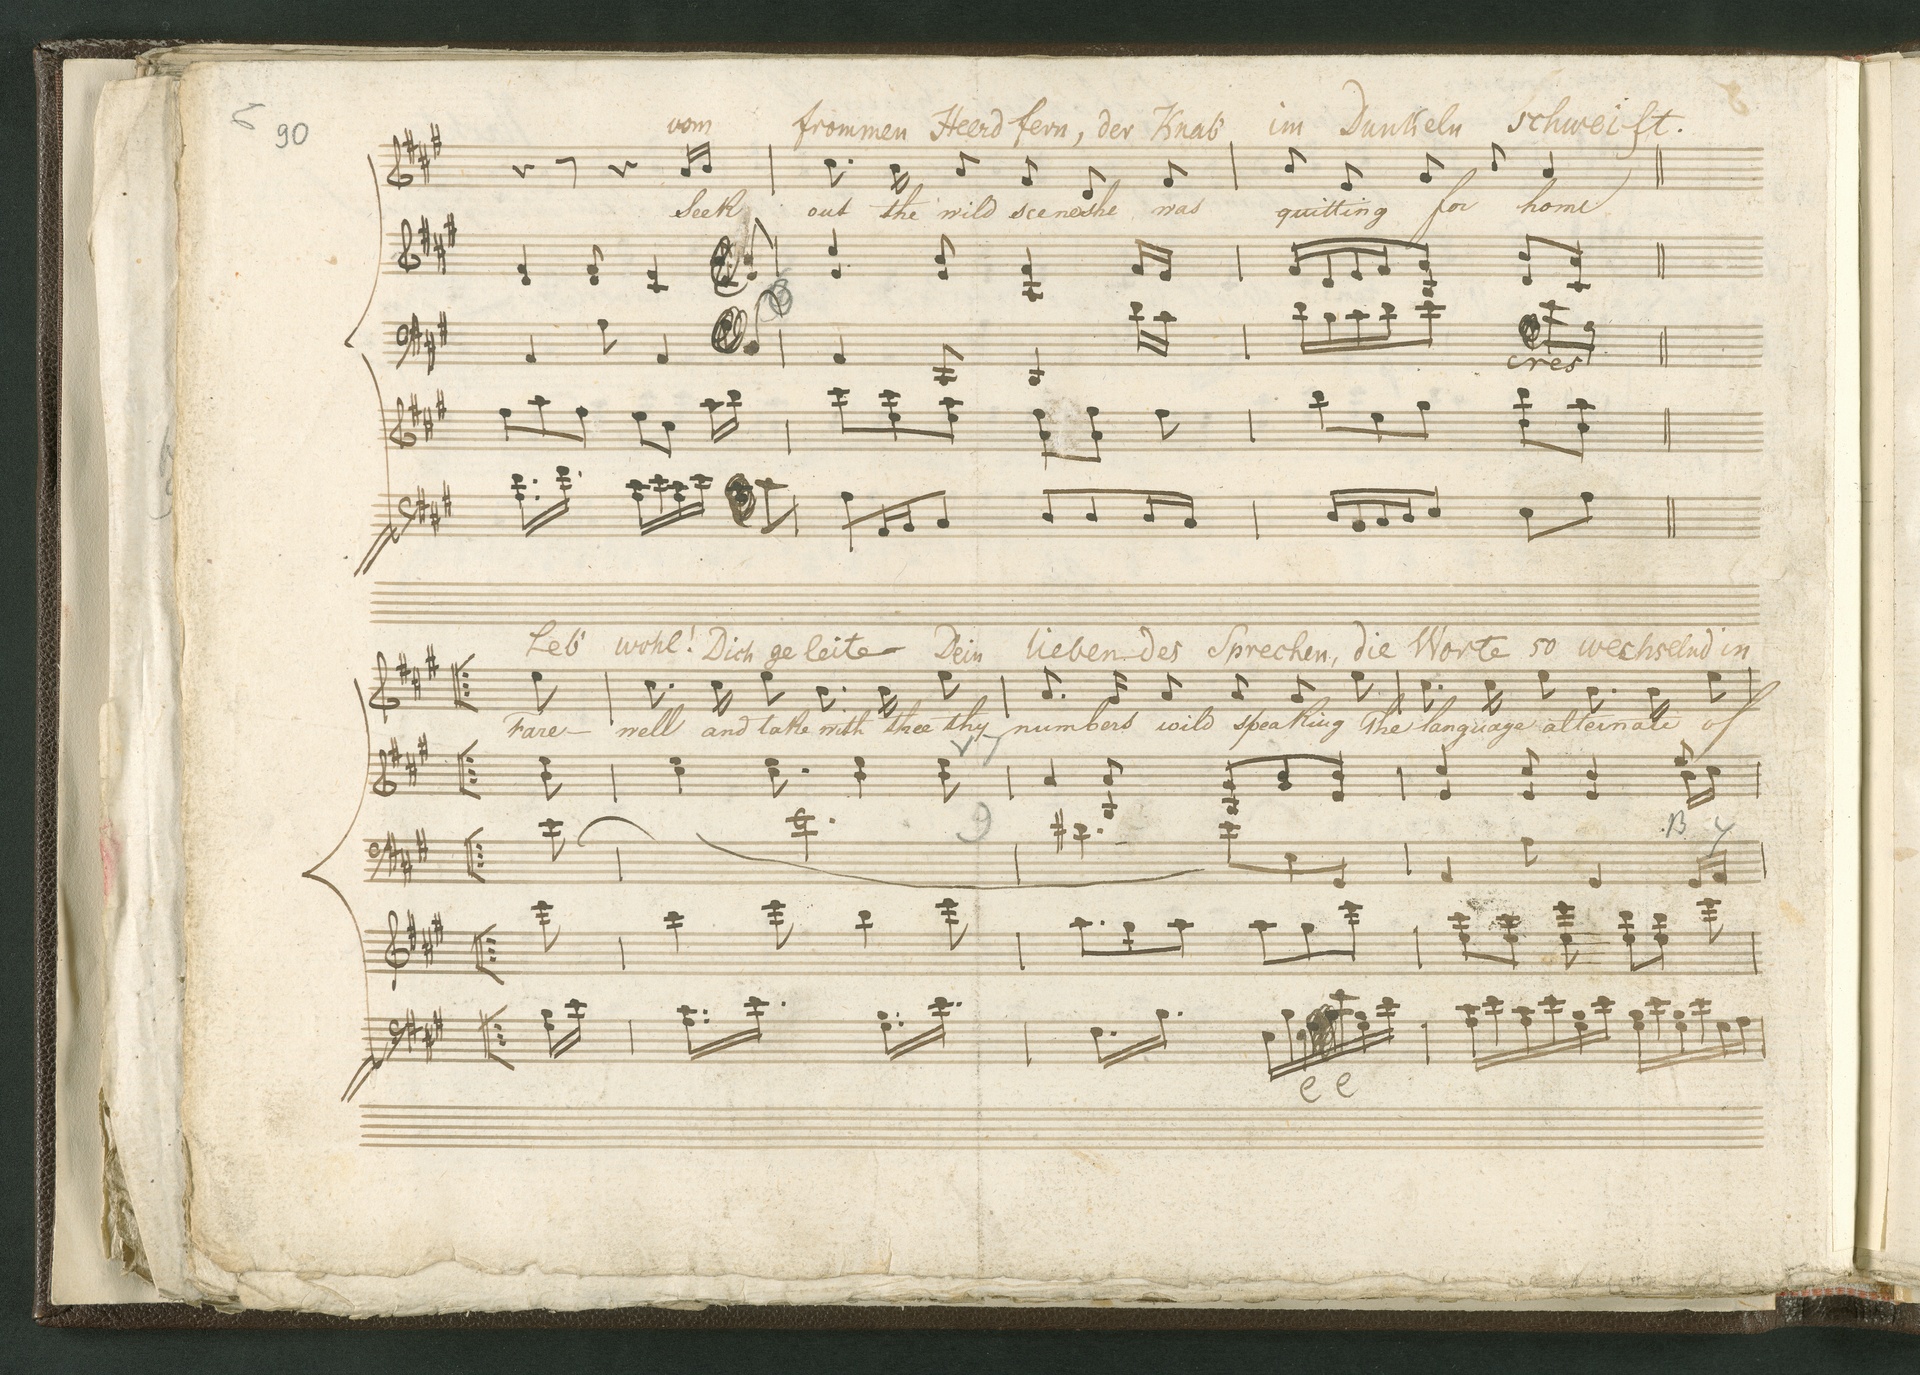 6 90
vom frommen Heerd fern, der Knab im Dunkeln schweift.
Seek out the wild scenes he was quitting for home
cres
Leb wohl! Dich geleite Dein lieben des Sprechen, die Worte so wechselnd in
Fare- well and take with thee thy numbers wild speaking The language alternate of
B
e e